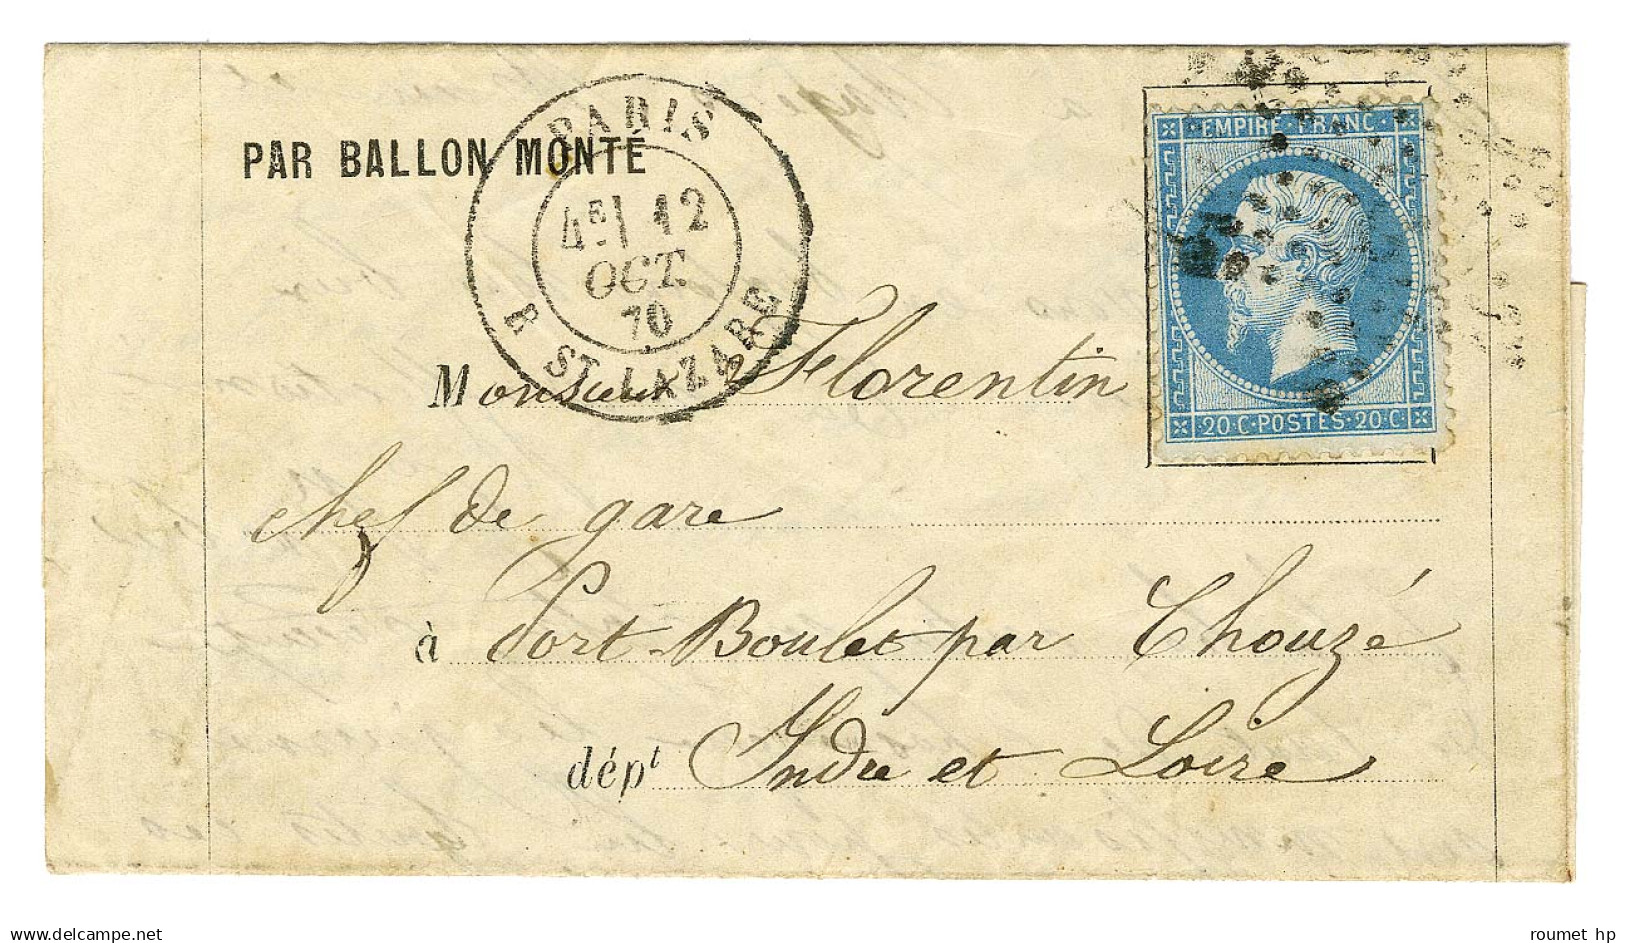 PAR BALLON MONTÉ
PARIS
4E 12
OCT.
70
R ST LAZARE
EMPIRE FRANC
20 C POSTES 20 C
Monsieur Florentin
chef de gare
à Port Boulet par Chouzé
dépt Indre et Loire
delcampe.net
roumet hp